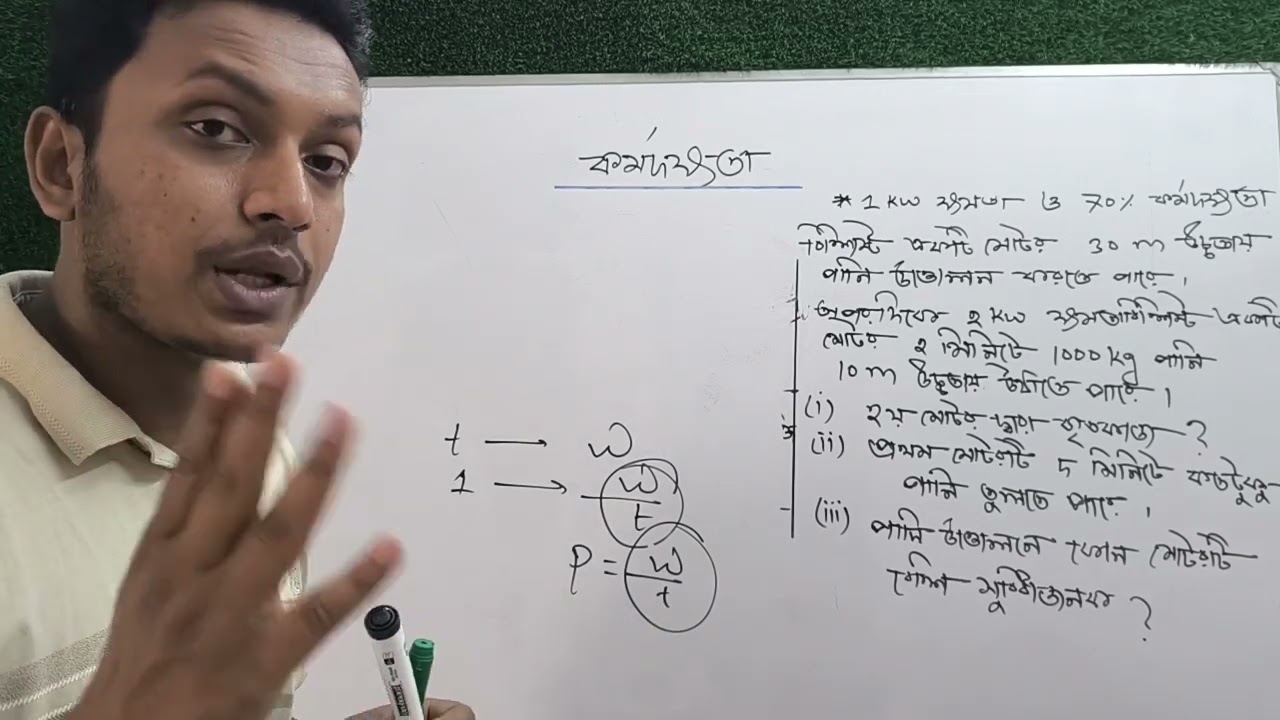 কর্মদক্ষতা
* 1 KW ক্ষমতা ও 70% কর্মদক্ষতা
বিশিষ্ট একটি মোটর 30 m উচ্চতায়
পানি উত্তোলন করতে পারে।
অপরদিকে ২ KW ক্ষমতাবিশিষ্ট একটি
মোটর ২ মিনিটে 1000 kg পানি
10 m উচ্চতায় উঠাতে পারে।
(i) ২য় মোটর দ্বারা কৃতকাজ ?
(ii) প্রথম মোটরটি ৫ মিনিটে কতটুকু
পানি তুলতে পারে।
(iii) পানি উত্তোলনে কোন মোটরটি
বেশি সুবিধাজনক ?
t → W
1 → W/t
P = W/t